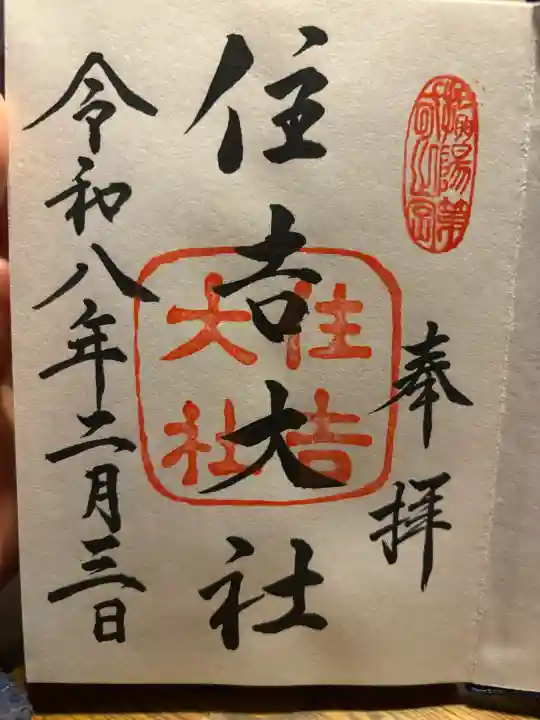 奉拝
住吉大社
住吉
大社
令和八年二月三日